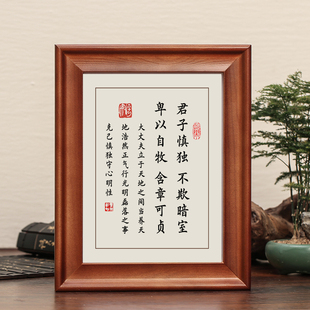 君子慎独 不欺暗室
卑以自牧 含章可贞
大丈夫立于天地之间当养天
地浩然正气行光明磊落之事
克己慎独守心明性